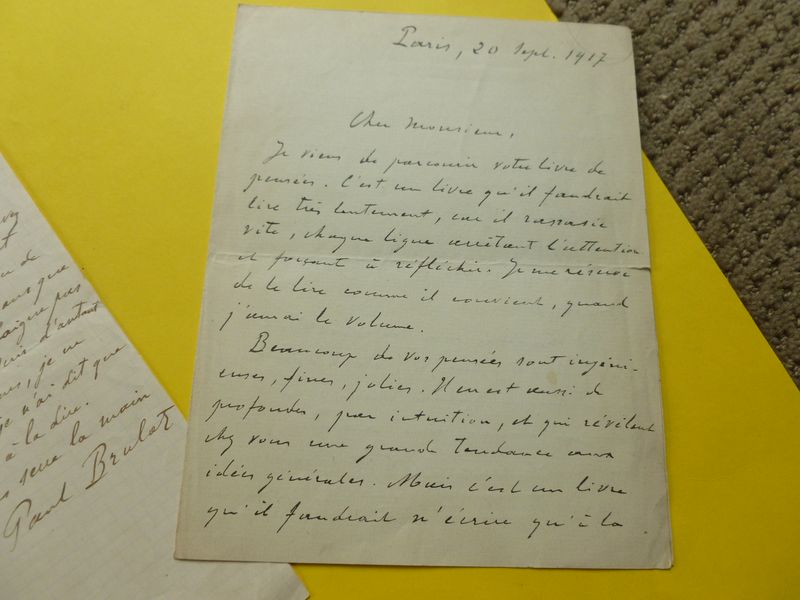 Paris, 20 Sept. 1917
Cher Monsieur,
Je viens de parcourir votre livre de
pensées. C'est un livre qu'il faudrait
lire très lentement, car il rassasie
vite, chaque ligne arrêtant l'attention
et forçant à réfléchir. Je me réserve
de le lire comme il convient, quand
j'aurai le volume.
Beaucoup de vos pensées sont ingéni-
euses, fines, jolies. Il en est aussi de
profondes, par intuition, et qui révèlent
chez vous une grande tendance aux
idées générales. Mais c'est un livre
qu'il faudrait n'écrire qu'à la
de
que
pas
d'autant
je
je n'ai dit que
à la dire.
serre la main
Paul Brulat